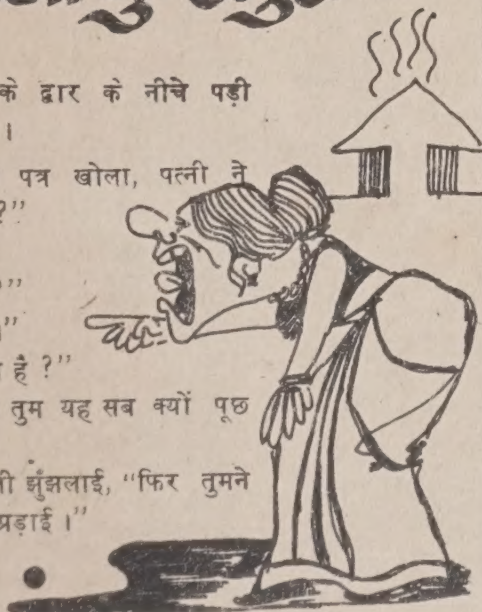 के द्वार के नीचे पड़ी
।
पत्र खोला, पत्नी ने
?”
”
”
है ?”
तुम यह सब क्यों पूछ
झुंझलाई, “फिर तुमने
।”